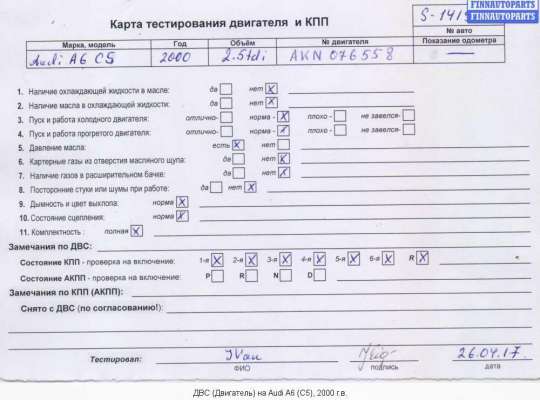 FINNAUTOPARTS
FINNAUTOPARTS
Карта тестирования двигателя и КПП
№ авто
Марка, модель Год Объём № двигателя Показание одометра
Audi A6 C5 2000 2.5tdi AKN 076558 —
1. Наличие охлаждающей жидкости в масле: да нет X
2. Наличие масла в охлаждающей жидкости: да нет X
3. Пуск и работа холодного двигателя: отлично- норма - X плохо - не завелся-
4. Пуск и работа прогретого двигателя: отлично- норма - X плохо - не завелся-
5. Давление масла: есть X нет
6. Картерные газы из отверстия масляного щупа: да нет X
7. Наличие газов в расширительном бачке: да нет X
8. Посторонние стуки или шумы при работе: да нет X
9. Дымность и цвет выхлопа: норма X
10. Состояние сцепления: норма X
11. Комплектность : полная X
Замечания по ДВС:
Состояние КПП - проверка на включение: 1-я X 2-я X 3-я X 4-я X 5-я X 6-я X R X
Состояние АКПП - проверка на включение: P R N D
Замечания по КПП (АКПП):
Снято с ДВС (по согласованию!):
Тестировал: IVan 26.04.17.
ФИО подпись дата
ДВС (Двигатель) на Audi A6 (C5), 2000 г.в.